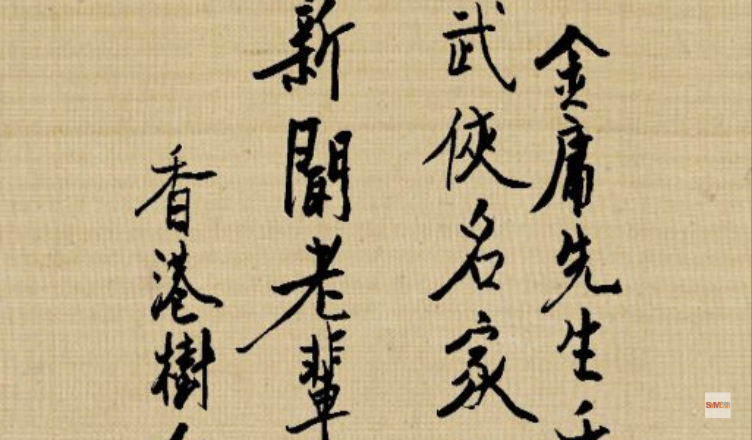 金庸先生
武俠名家
新聞老輩
香港樹